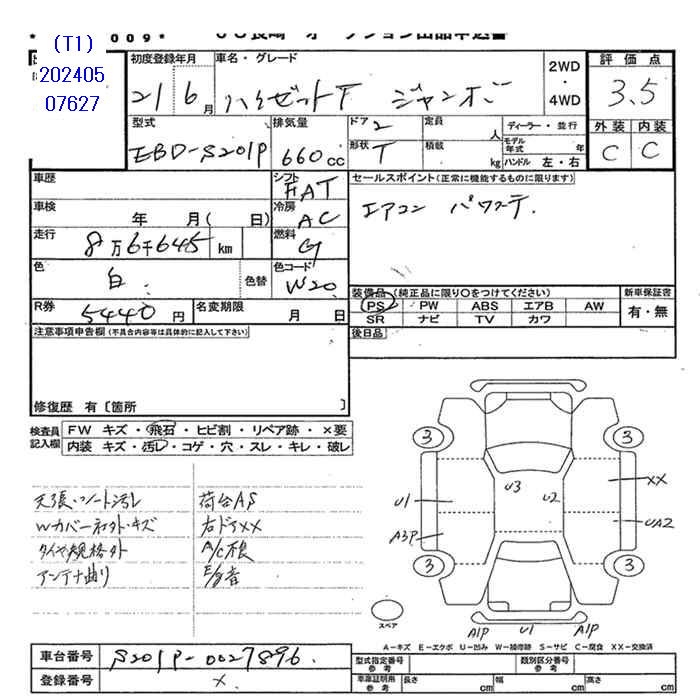 (T1)
202405
07627
009*
JU長崎 オークション出品申込書
初度登録年月
21 6月
車名・グレード
ハイゼットT ジャンボ
2WD・4WD
評価点
3.5
外装 内装
C C
型式
EBD-S201P
排気量
660cc
ドア 2
形状 T
定員 人
積載 kg
ディーラー・並行
モデル年式 年
ハンドル 左・右
車歴
シフト FAT
セールスポイント(正常に機能するものに限ります)
エアコン パワステ.
車検 年 月( 日)
冷房 AC
走行 8万6千645 km
燃料 G
色 白 色替
色コード W20
R券 5440円
名変期限 月 日
装備品(純正品に限り○をつけてください)
PS PW ABS エアB AW
SR ナビ TV カワ
新車保証書
有・無
注意事項申告欄(不具合内容等は具体的に記入して下さい)
後日品
修復歴 有〔箇所 〕
検査員記入欄
FW キズ・飛石・ヒビ割・リペア跡・×要
内装 キズ・汚レ・コゲ・穴・スレ・キレ・破レ
天張・シート汚レ
Wカバーネクト・キズ
タイヤ規格外
アンテナ曲り
荷台AS
右ドアXX
A/C不良
E/g音
3 3
3 3
U3 U2
U1 XX
A3P UA2
A1P U1 A1P
スペア
A-キズ E-エクボ U-凹み W-補修跡 S-サビ C-腐食 XX-交換済
車台番号 S201P-0027896.
登録番号 ×
型式指定番号 参考
類別区分番号 参考
車庫証明用 参考 長さ cm 幅 cm 高さ cm